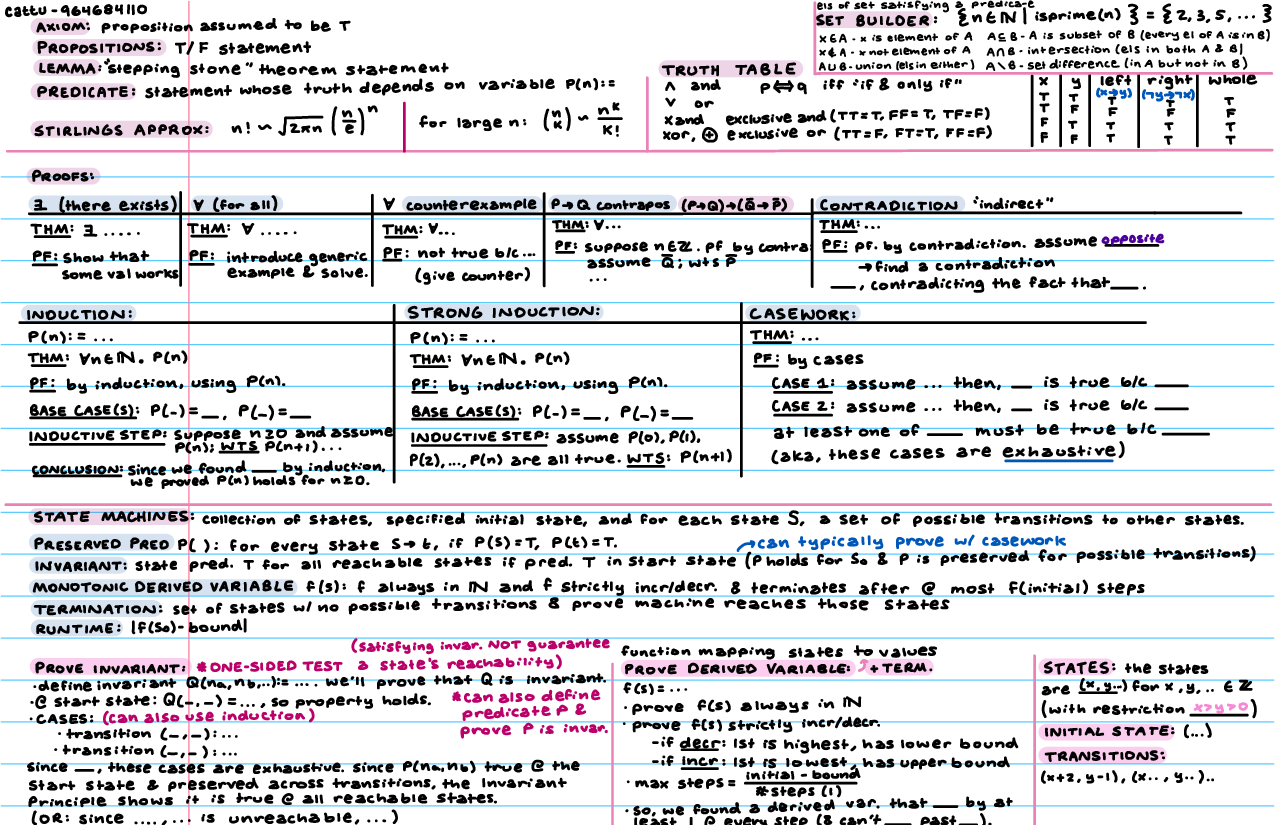 cattu - 964684110
AXIOM: proposition assumed to be T
PROPOSITIONS: T/F statement
LEMMA: "stepping stone" theorem statement
PREDICATE: statement whose truth depends on variable P(n):=
STIRLINGS APPROX: n! ~ √2πn (n/e)^n
for large n: (n k) ~ n^k/k!
els of set satisfying a predicate
SET BUILDER: {n∈ℕ | isprime(n)} = {2, 3, 5, ...}
x∈A - x is element of A A⊆B - A is subset of B (every el of A is in B)
x∉A - x not element of A A∩B - intersection (els in both A & B)
A∪B - union (els in either) A\B - set difference (in A but not in B)
TRUTH TABLE
∧ and p⟺q iff "if & only if"
∨ or
xand exclusive and (TT=T, FF=T, TF=F)
xor, ⊕ exclusive or (TT=F, FT=T, FF=F)
x y left right whole
(x→y) (¬y→¬x)
T T T T T
T F F F F
F T T T T
F F T T T
PROOFS:
∃ (there exists)
THM: ∃ .....
PF: Show that
some val works
∀ (for all)
THM: ∀ .....
PF: introduce generic
example & solve.
∀ counterexample
THM: ∀...
PF: not true b/c ...
(give counter)
P→Q contrapos (P→Q)→(Q̄→P̄)
THM: ∀...
PF: suppose n∈ℤ. pf by contra
assume Q̄; wts P̄
...
CONTRADICTION "indirect"
THM: ...
PF: pf. by contradiction. assume opposite
→find a contradiction
___, contradicting the fact that ___.
INDUCTION:
P(n):= ...
THM: ∀n∈ℕ. P(n)
PF: by induction, using P(n).
BASE CASE(S): P(-)=__, P(-)=__
INDUCTIVE STEP: Suppose n≥0 and assume
P(n); WTS P(n+1)...
CONCLUSION: Since we found ___ by induction,
we proved P(n) holds for n≥0.
STRONG INDUCTION:
P(n):= ...
THM: ∀n∈ℕ. P(n)
PF: by induction, using P(n).
BASE CASE(S): P(-)=__, P(-)=__
INDUCTIVE STEP: assume P(0), P(1),
P(2),..., P(n) are all true. WTS: P(n+1)
CASEWORK:
THM: ...
PF: by cases
CASE 1: assume ... then, __ is true b/c ___
CASE 2: assume ... then, __ is true b/c ___
at least one of ___ must be true b/c ___
(aka, these cases are exhaustive)
STATE MACHINES: collection of states, specified initial state, and for each state S, a set of possible transitions to other states.
PRESERVED PRED P( ): for every state S→t, if P(S)=T, P(t)=T.
→can typically prove w/ casework
INVARIANT: state pred. T for all reachable states if pred. T in start state (P holds for S₀ & P is preserved for possible transitions)
MONOTONIC DERIVED VARIABLE f(s): f always in ℕ and f strictly incr/decr. & terminates after @ most f(initial) steps
TERMINATION: set of states w/ no possible transitions & prove machine reaches those states
RUNTIME: |f(S₀)-bound|
(satisfying invar. NOT guarantee
PROVE INVARIANT: *ONE-SIDED TEST a state's reachability)
·define invariant Q(na,nb,..):= .... we'll prove that Q is invariant.
·@ start state: Q(-,-)=..., so property holds.
·CASES: (can also use induction)
·transition (-,-):...
·transition (-,-):...
*can also define
predicate P &
prove P is invar.
since __, these cases are exhaustive. since P(na,nb) true @ the
start state & preserved across transitions, the Invariant
Principle shows it is true @ all reachable states.
(OR: since ....,... is unreachable, ...)
function mapping states to values
PROVE DERIVED VARIABLE: + TERM.
f(s)=...
·prove f(s) always in ℕ
·prove f(s) strictly incr/decr.
-if decr: 1st is highest, has lower bound
-if incr: 1st is lowest, has upper bound
·max steps = initial - bound / #steps (1)
·So, we found a derived var. that ___ by at
least 1 @ every step (& can't ___ past __).
STATES: the states
are (x,y..) for x,y,.. ∈ ℤ
(with restriction x>y>0)
INITIAL STATE: (...)
TRANSITIONS:
(x+2, y-1), (x.., y..)..